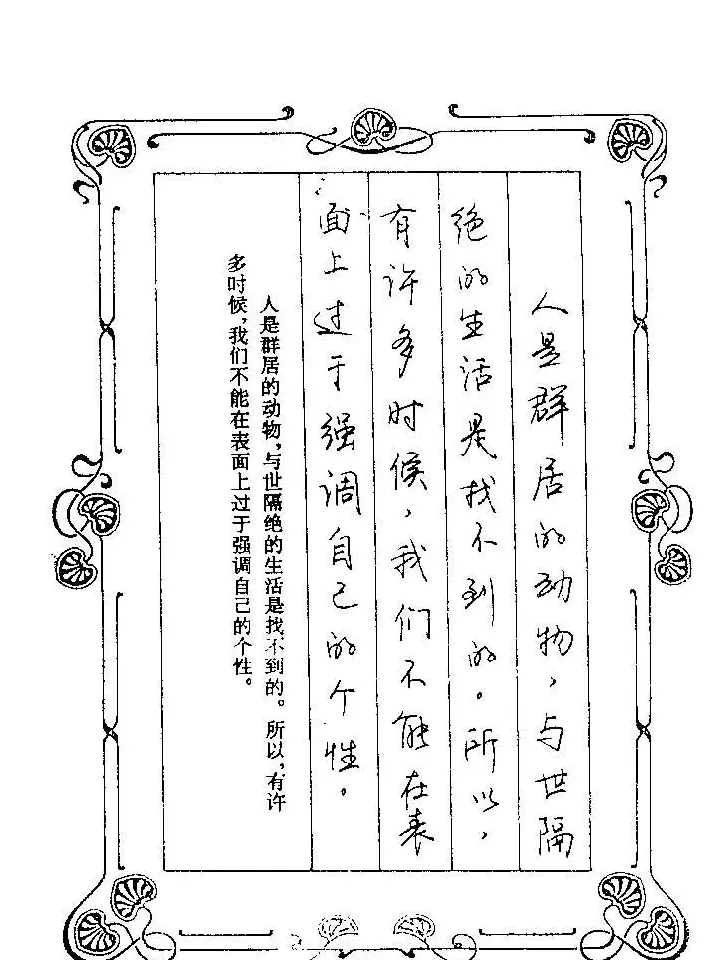 人是群居的动物，与世隔
绝的生活是找不到的。所以，
有许多时候，我们不能在表
面上过于强调自己的个性。
人是群居的动物，与世隔绝的生活是找不到的。所以，有许
多时候，我们不能在表面上过于强调自己的个性。